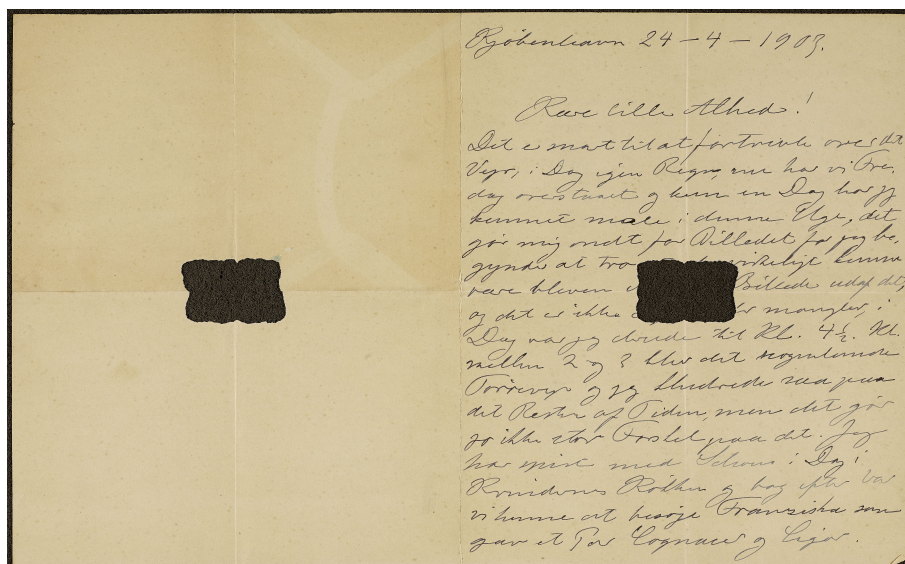 Kjøbenhavn 24-4-1903.
Kære lille Alhed!
Det er snart til at fortvivle over det
Vejr, i Dag igen Regn, nu har vi Fre,
dag overstaaet og kun en Dag har jeg
kunnet male i denne Uge, det
gør mig ondt for Billedet for jeg be,
gynder at tro virkeligt kunne
være bleven Billede udaf det,
og det er ikke mangler, i
Dag var jeg derude til Kl. 4½. Kl.
mellem 2 og 3 blev det nogenlunde
Tørrevejr og jeg paa
det Resten af Tiden, men det gør
jo ikke stor Forskel paa det. Jeg
har spist med Schous i Dag i
Kvindernes Køkken og bag efter var
vi henne at besøge Franziska som
gav et Par Cognacer og Cigar.